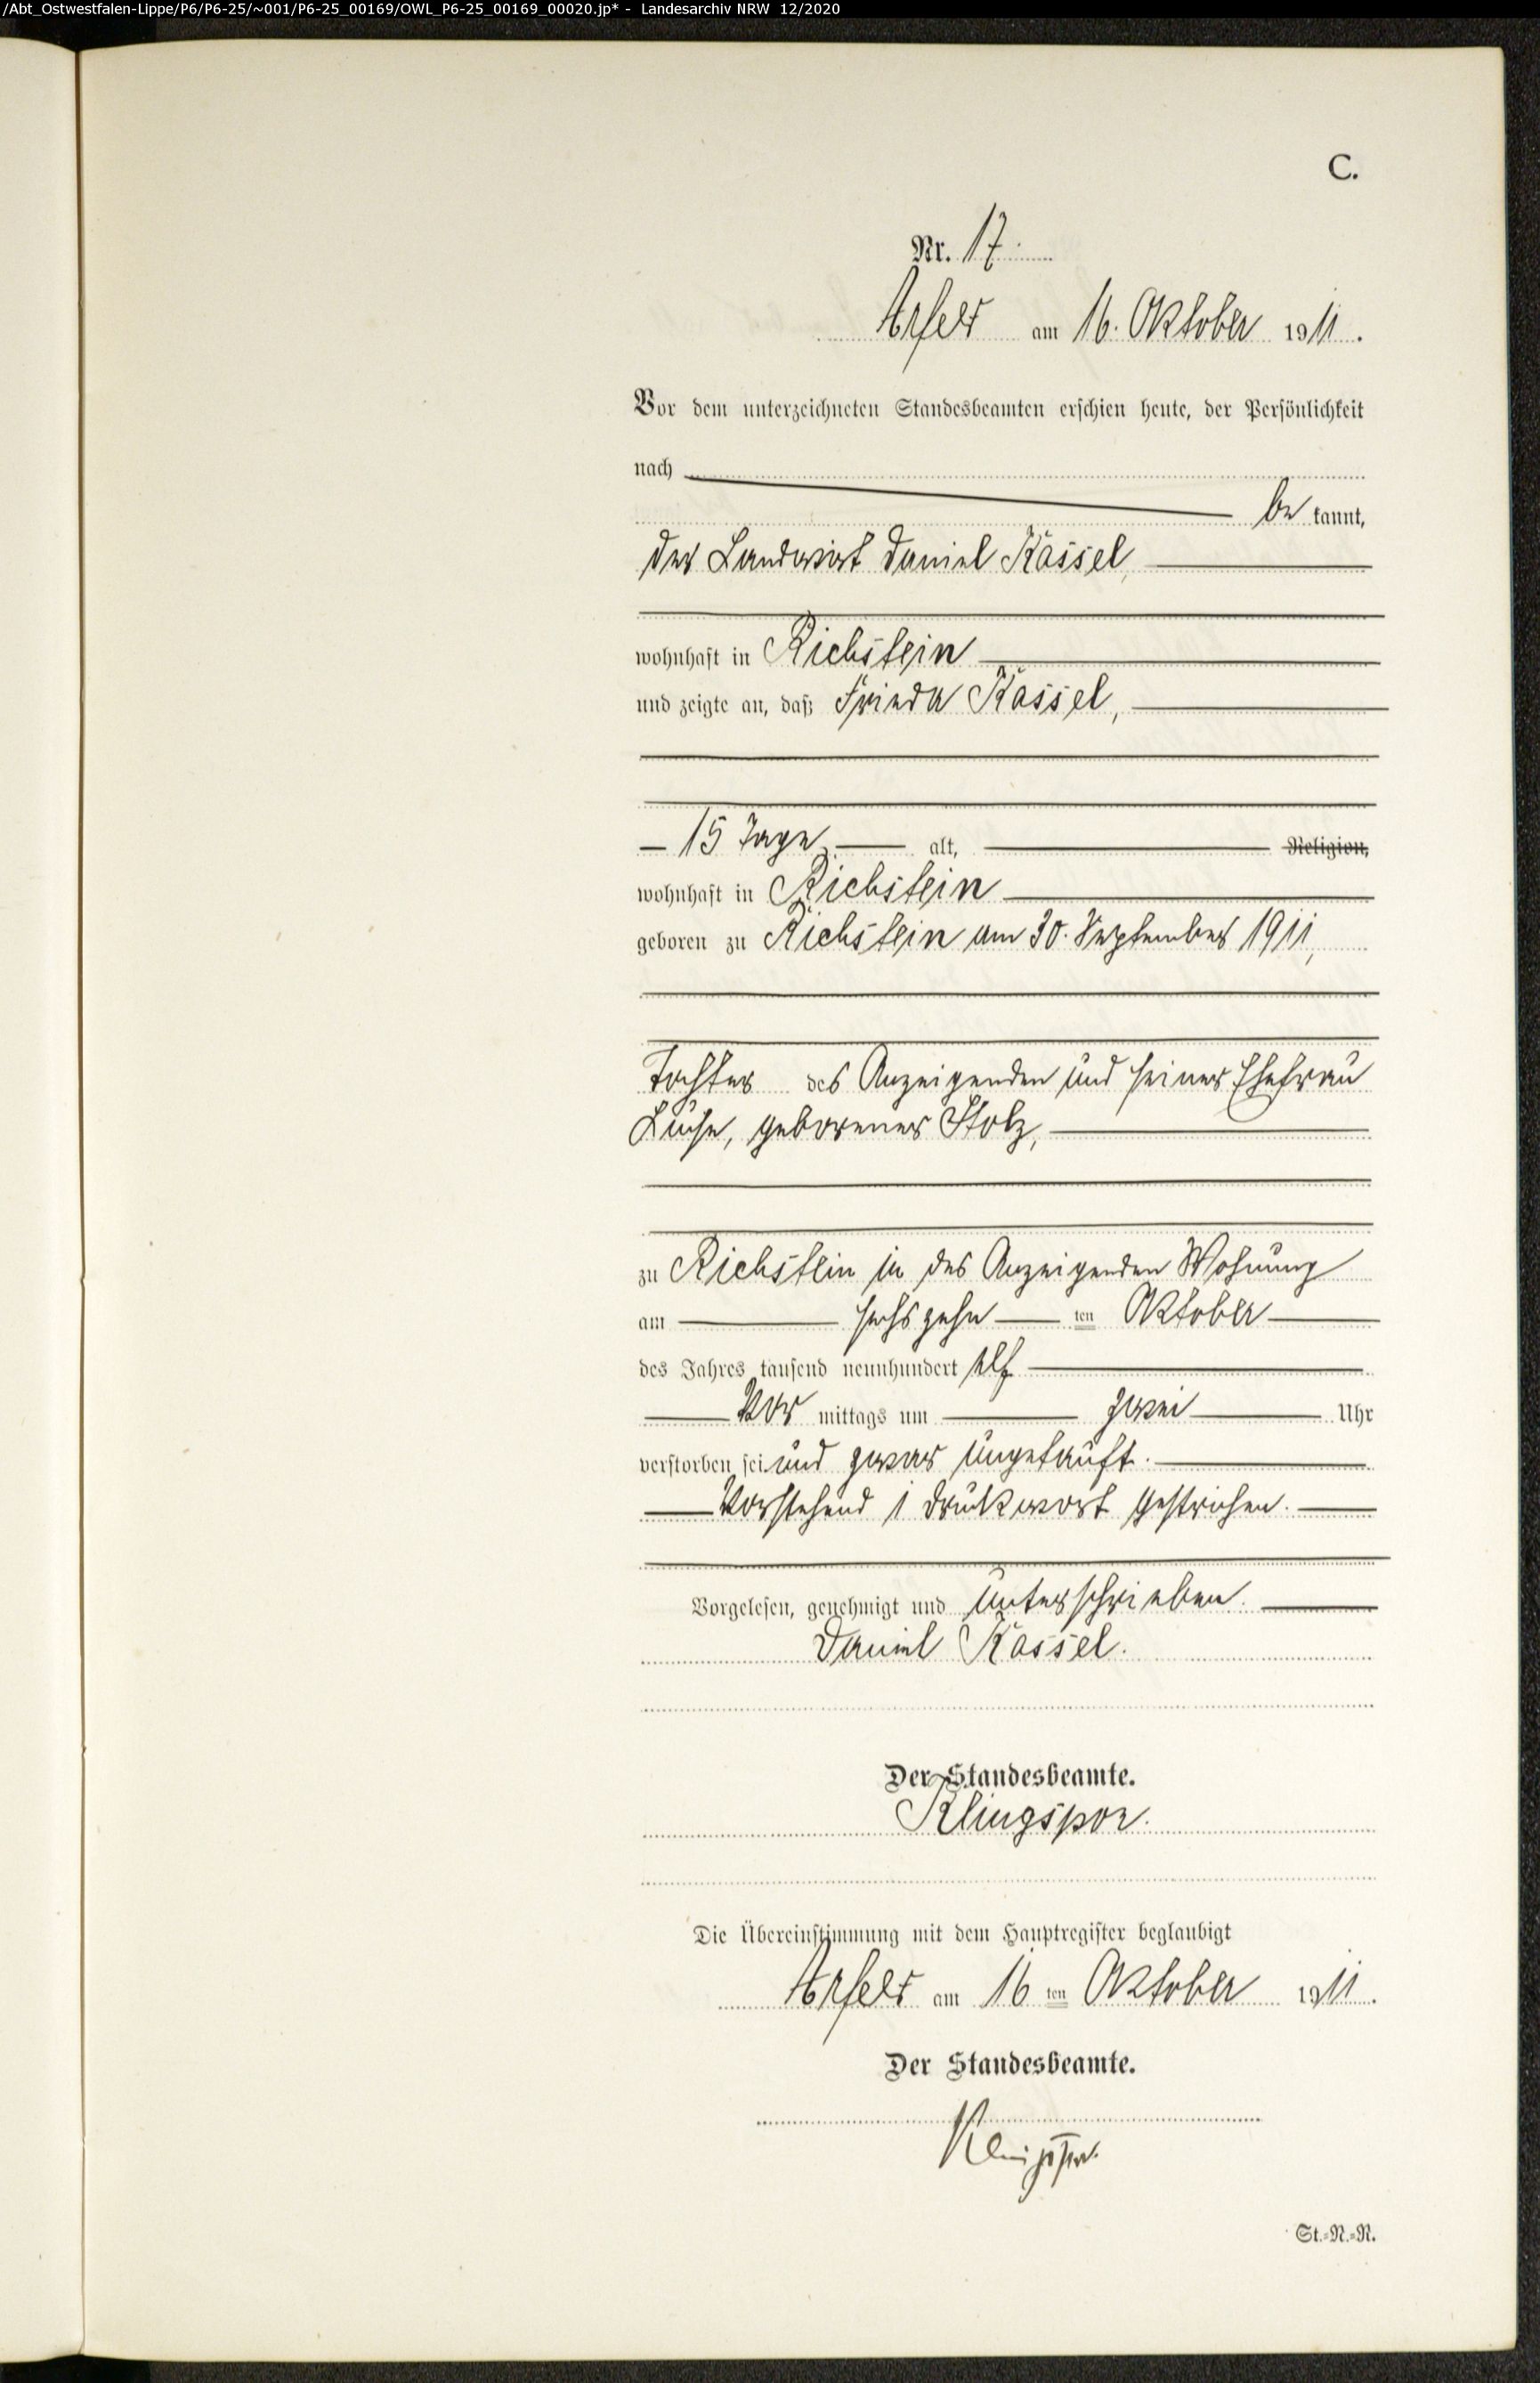 /Abt_Ostwestfalen-Lippe/P6/P6-25/~001/P6-25_00169/OWL_P6-25_00169_00020.jp* - Landesarchiv NRW 12/2020
C.
Nr. 17.
Arfeld am 16. Oktober 1911.
Vor dem unterzeichneten Standesbeamten erschien heute, der Persönlichkeit
nach
be kannt,
der Landwirt Daniel Kassel,
wohnhaft in Richstein
und zeigte an, daß Frieda Kassel,
15 Tage alt, Religion,
wohnhaft in Richstein
geboren zu Richstein am 30. September 1911,
Tochter des Anzeigenden und seiner Ehefrau
Luise, geborener Stolz,
zu Richstein in des Anzeigenden Wohnung
am sechszehn ten Oktober
des Jahres tausend neunhundert elf
Vor mittags um zwei Uhr
verstorben sei und zwar ungetauft.
Vorstehend 1 Druckwort gestrichen.
Vorgelesen, genehmigt und unterschrieben.
Daniel Kassel.
Der Standesbeamte.
Klingspor.
Die Übereinstimmung mit dem Hauptregister beglaubigt
Arfeld am 16 ten Oktober 1911.
Der Standesbeamte.
Klingspor.
St.-N.-R.